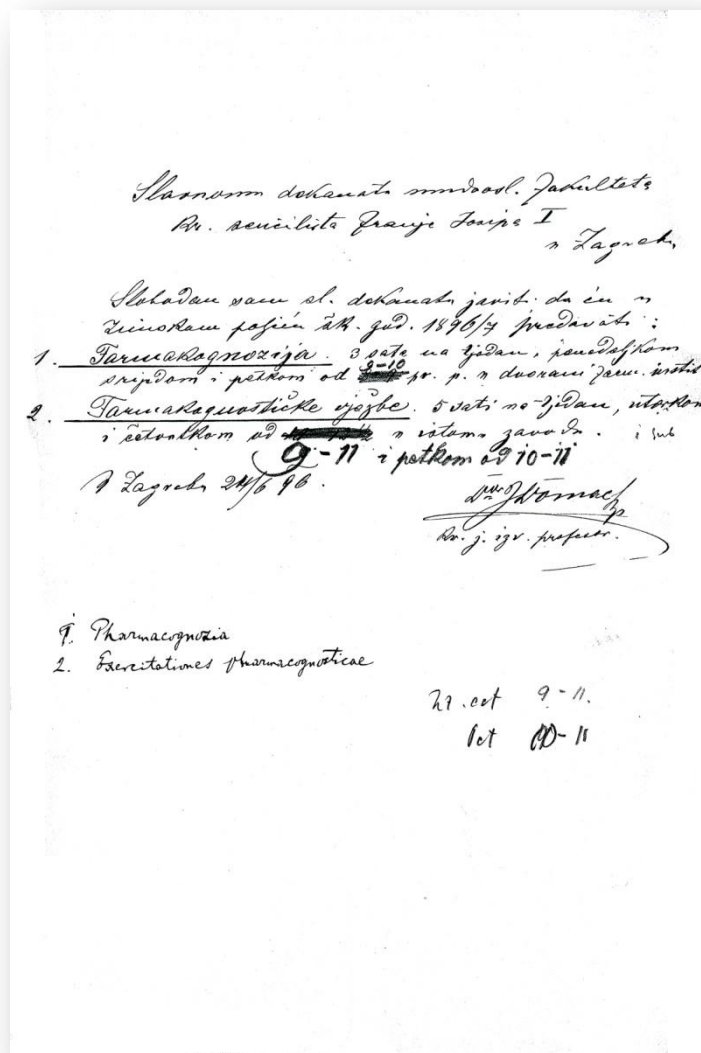 Slavnomu dekanatu mudrosl. fakulteta
kr. sveučilišta Franje Josipa I
u Zagrebu
Slobodan sam sl. dekanatu javiti da ću u
zimskom poljeću šk. god. 1896/7 predavati:
1. Farmakognozija. 3 sata na tjedan, ponedjeljkom
srijedom i petkom od 9-10 pr. p. u dvorani farm. instit
2. Farmakognostičke vježbe. 5 sati na tjedan, utorkom
i četvrtkom od u istome zavodu. i sub
9-11 i petkom od 10-11
U Zagrebu 24/6 96.
Dr J Domac
kr. j. izv. profesor.
1. Pharmacognosia
2. Exercitationes pharmacognosticae
čet 9-11.
Pet 10-11